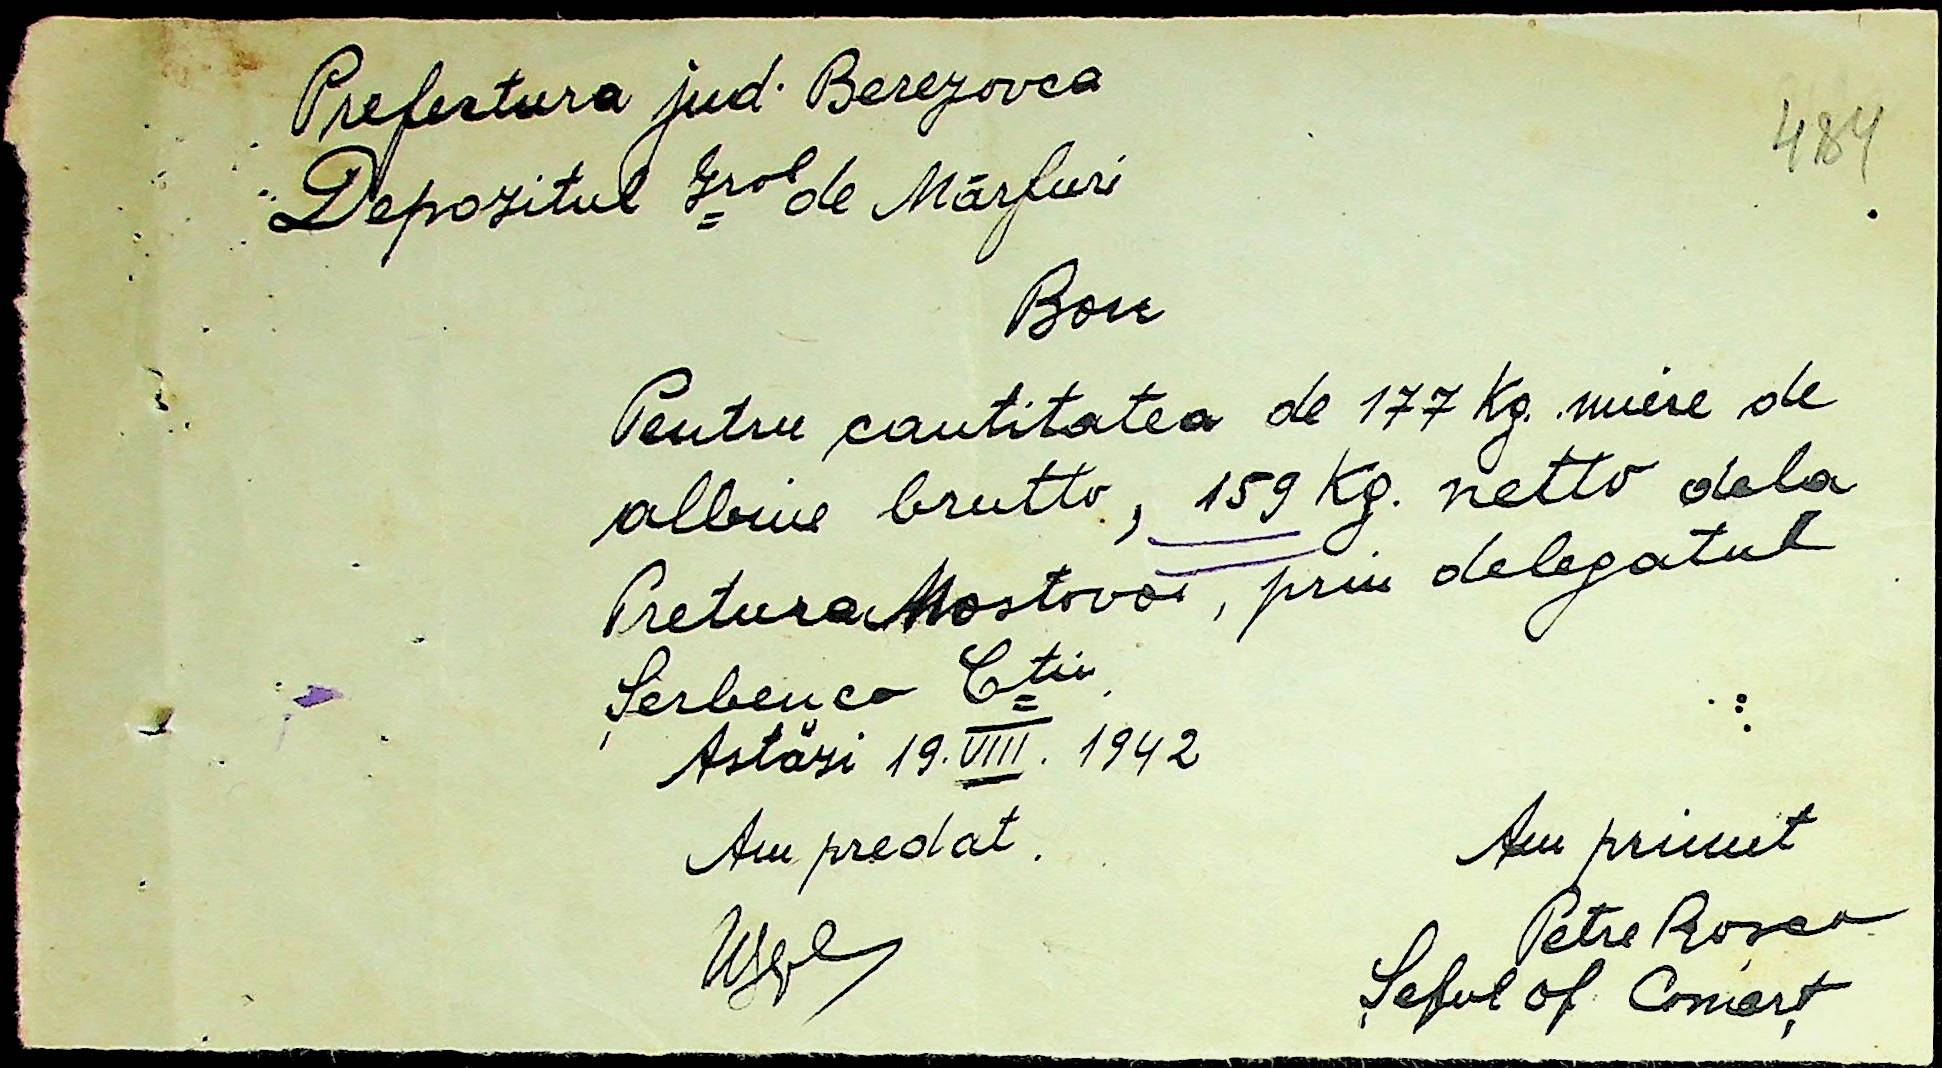 484
Prefectura jud. Berezovca
Depozitul Gral de Mărfuri
Bon
Pentru cantitatea de 177 Kg. miere de
albine brutto, 159 Kg. netto dela
Pretura Mostovoi, prin delegatul
Șerbenco Ctin.
Astăzi 19.VIII.1942
Am predat.
Am primit
Petre Roșca
Șeful of Comerț